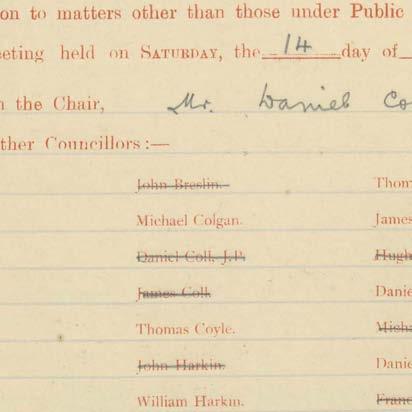 on to matters other than those under Public
eeting held on SATURDAY, the 14 day of
n the Chair, Mr. Daniel Co
ther Councillors:—
John Breslin. Thom
Michael Colgan. James
Daniel Coll, J.P. Hugh
James Coll Danie
Thomas Coyle. Micha
John Harkin. Danie
William Harkin. Franc